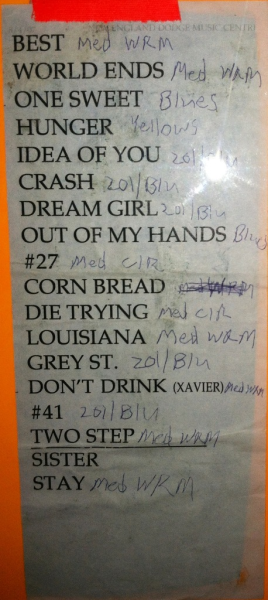 ENGLAND DODGE MUSIC CENTRE
BEST Med WRM
WORLD ENDS Med WRM
ONE SWEET Blues
HUNGER Yellows
IDEA OF YOU 201/Blu
CRASH 201/Blu
DREAM GIRL 201/Blu
OUT OF MY HANDS Blues
#27 Med CLR
CORN BREAD
DIE TRYING med CLR
LOUISIANA Med WRM
GREY ST. 201/Blu
DON'T DRINK (XAVIER) Med WRM
#41 201/Blu
TWO STEP Med WRM
SISTER
STAY Med WRM